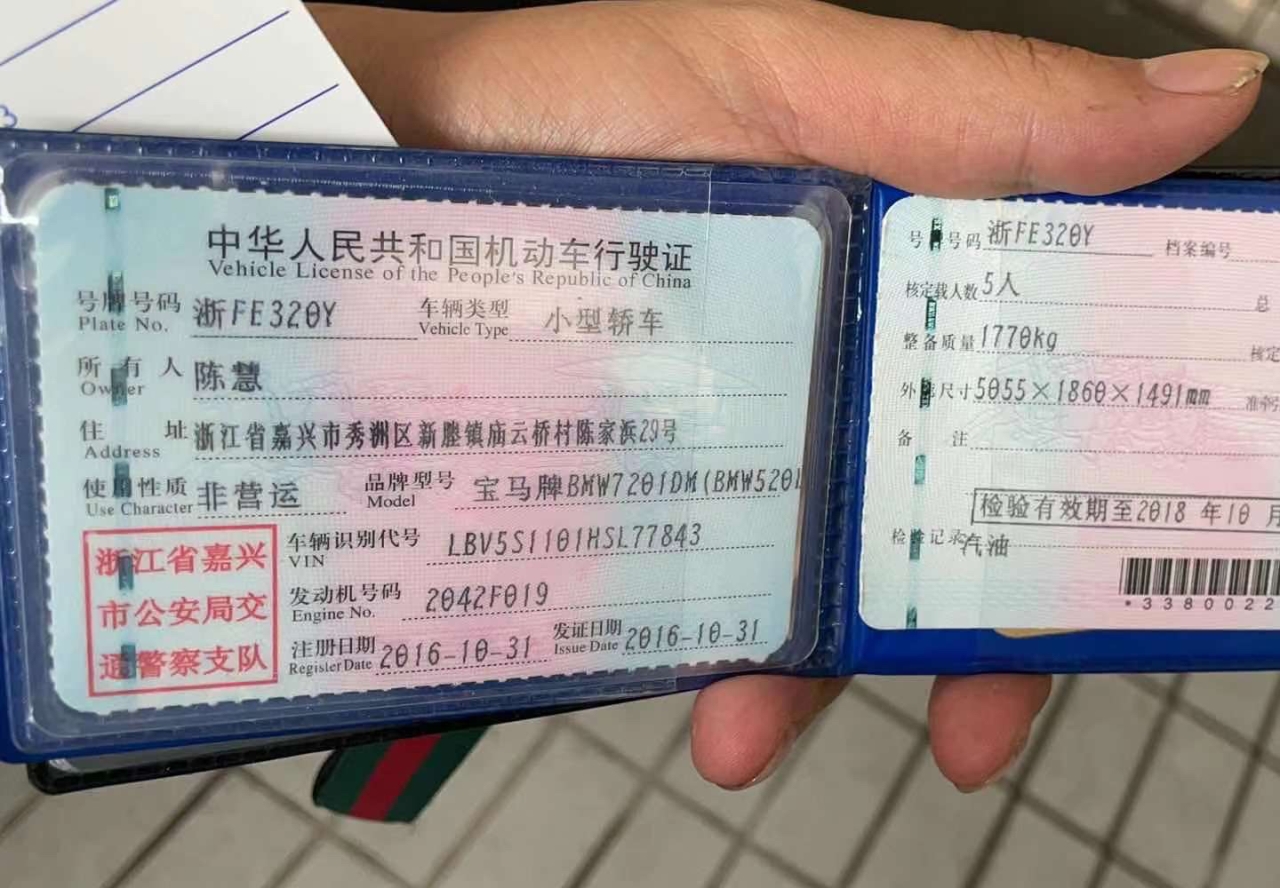 中华人民共和国机动车行驶证
Vehicle License of the People's Republic of China
号牌号码 浙FE320Y 车辆类型 小型轿车
Plate No. Vehicle Type
所有人 陈慧
Owner
住址 浙江省嘉兴市秀洲区新塍镇庙云桥村陈家浜29号
Address
使用性质 非营运 品牌型号 宝马牌BMW7201DM(BMW520L
Use Character Model
浙江省嘉兴
市公安局交
通警察支队
车辆识别代号 LBV5S1101HSL77843
VIN
发动机号码 2042F019
Engine No.
注册日期 2016-10-31 发证日期 2016-10-31
Register Date Issue Date
号牌号码 浙FE320Y 档案编号
核定载人数 5人 总
整备质量 1770kg 核定
外形尺寸 5055×1860×1491mm 准牵
备注
检验有效期至2018 年10 月
检验记录 汽油
*3380022